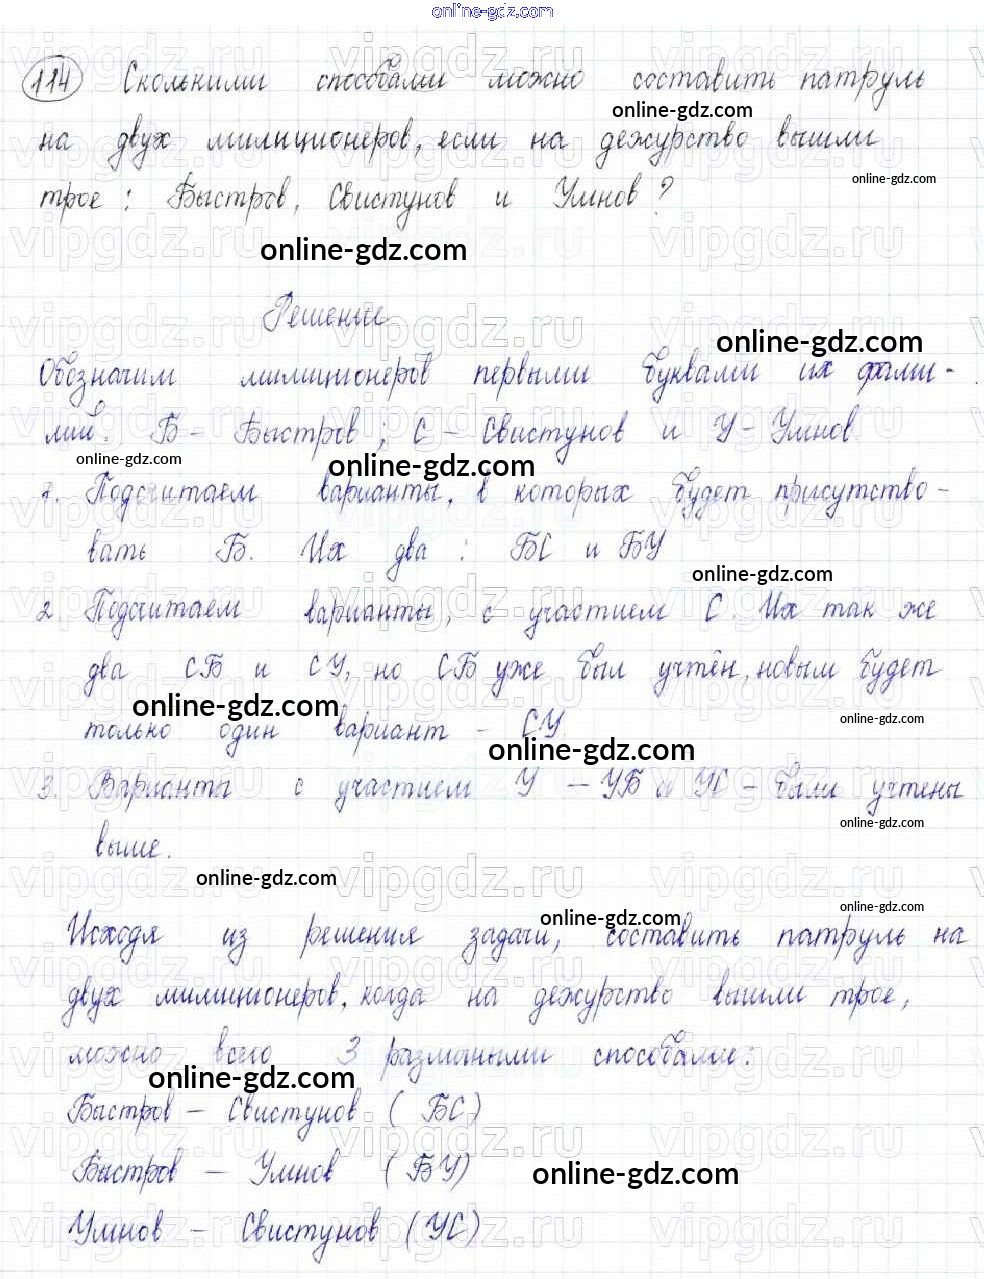 online-gdz.com
114 Сколькими способами можно составить патруль
online-gdz.com
на двух милиционеров, если на дежурство вышли
online-gdz.com
трое: Быстров, Свистунов и Умнов?
online-gdz.com
Решение
online-gdz.com
Обозначим милиционеров первыми буквами их фами-
лий. Б - Быстров; С - Свистунов и У - Умнов.
online-gdz.com
online-gdz.com
1. Подсчитаем варианты, в которых будет присутство-
вать Б. Их два: БС и БУ
online-gdz.com
2. Подсчитаем варианты, с участием С. Их так же
два СБ и СУ, но СБ уже был учтён, новым будет
online-gdz.com
online-gdz.com
только один вариант - СУ.
online-gdz.com
3. Варианты с участием У - УБ и УС - были учтены
online-gdz.com
выше.
online-gdz.com
online-gdz.com
online-gdz.com
Исходя из решения задачи, составить патруль на
двух милиционеров, когда на дежурство вышли трое,
можно всего 3 разными способами:
online-gdz.com
Быстров - Свистунов (БС)
Быстров - Умнов (БУ)
online-gdz.com
Умнов - Свистунов (УС)
vipgdz.ru